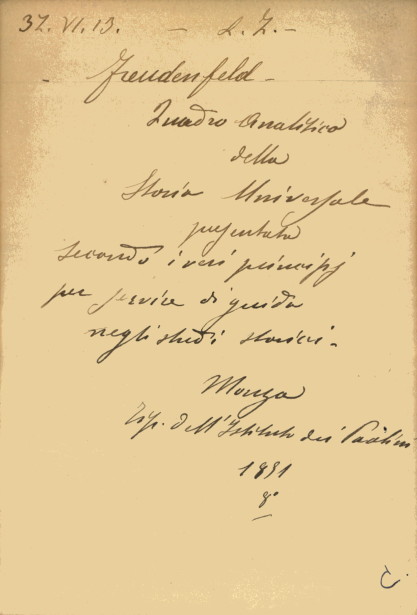 37. VI. 13. – L. Z. –
Freudenfeld –
Quadro Analitico
della
Storia Universale
presentata
secondo i veri principj
per servire di guida
negli studi storici –
Monza
Tip. dell'Istituto dei Paolini
1851
8°
C.